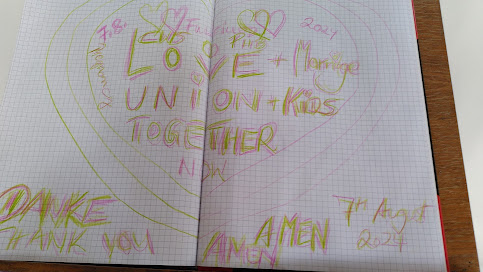 7.8. 2024
LOVE + Marriage
UNION + KIDS
TOGETHER
NOW
DANKE
THANK YOU
AMEN
AMEN
7TH August
2024